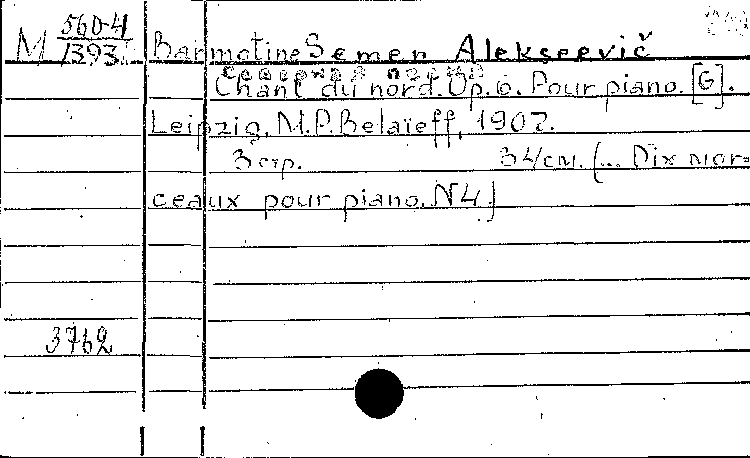 M 560-4/1393
Barmotine Semen Alekseevič
Chant du nord. Op. 6. Pour piano. [G].
Leipzig, M.P. Belaïeff, 1907.
3 стр. 34 см. (... Dix mor=
ceaux pour piano. N4)
3762